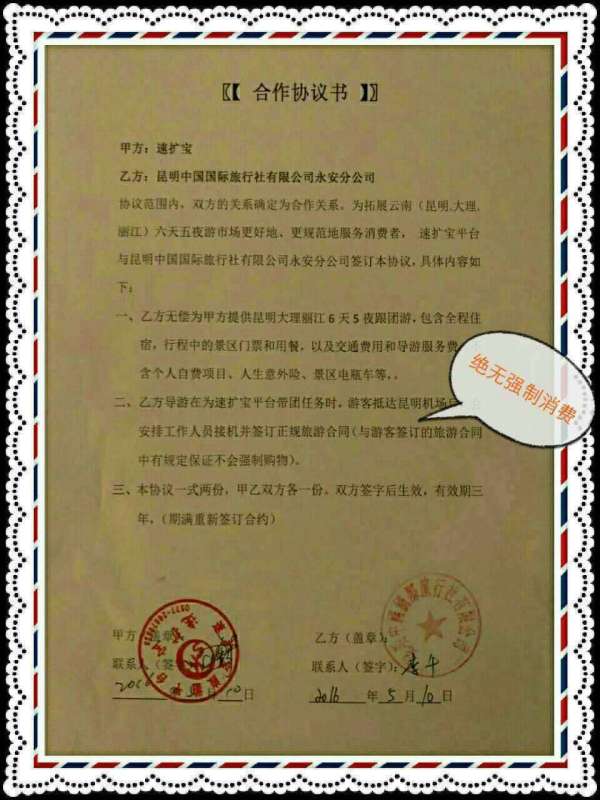 【【 合作协议书 】】
甲方：速扩宝
乙方：昆明中国国际旅行社有限公司永安分公司
协议范围内，双方的关系确定为合作关系。为拓展云南（昆明.大理.
丽江）六天五夜游市场更好地、更规范地服务消费者， 速扩宝平台
与昆明中国国际旅行社有限公司永安分公司签订本协议，具体内容如
下：
一、乙方无偿为甲方提供昆明大理丽江6天5夜跟团游，包含全程住
宿，行程中的景区门票和用餐，以及交通费用和导游服务费
含个人自费项目、人生意外险、景区电瓶车等，.
绝无强制消费
二、乙方导游在为速扩宝平台带团任务时，游客抵达昆明机场后
安排工作人员接机并签订正规旅游合同（与游客签订的旅游合同
中有规定保证不会强制购物）。
三、本协议一式两份，甲乙双方各一份。双方签字后生效，有效期三
年，（期满重新签订合约）
甲方（盖章 乙方（盖章）：
联系人（签字 联系人（签字）：李午
2016 5月10日 2016 年5月10日